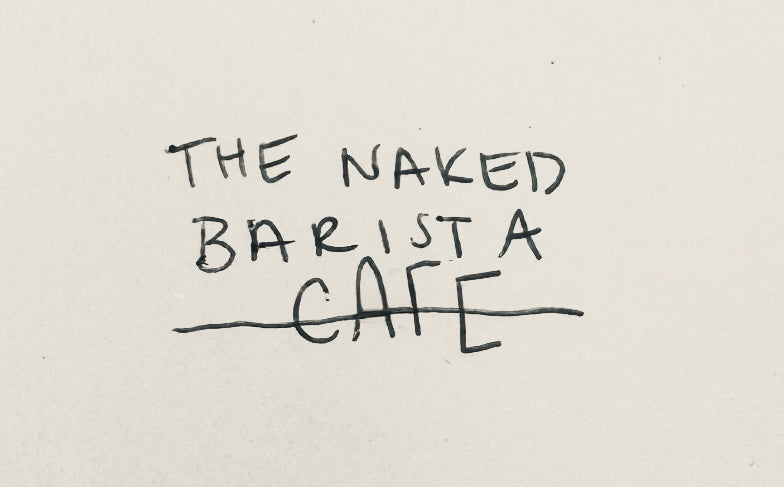 THE NAKED
BARISTA
CAFE